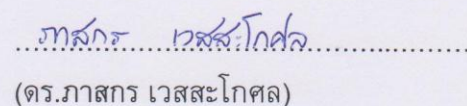 ภาสกร เวสสะโกศล
(ดร.ภาสกร เวสสะโกศล)